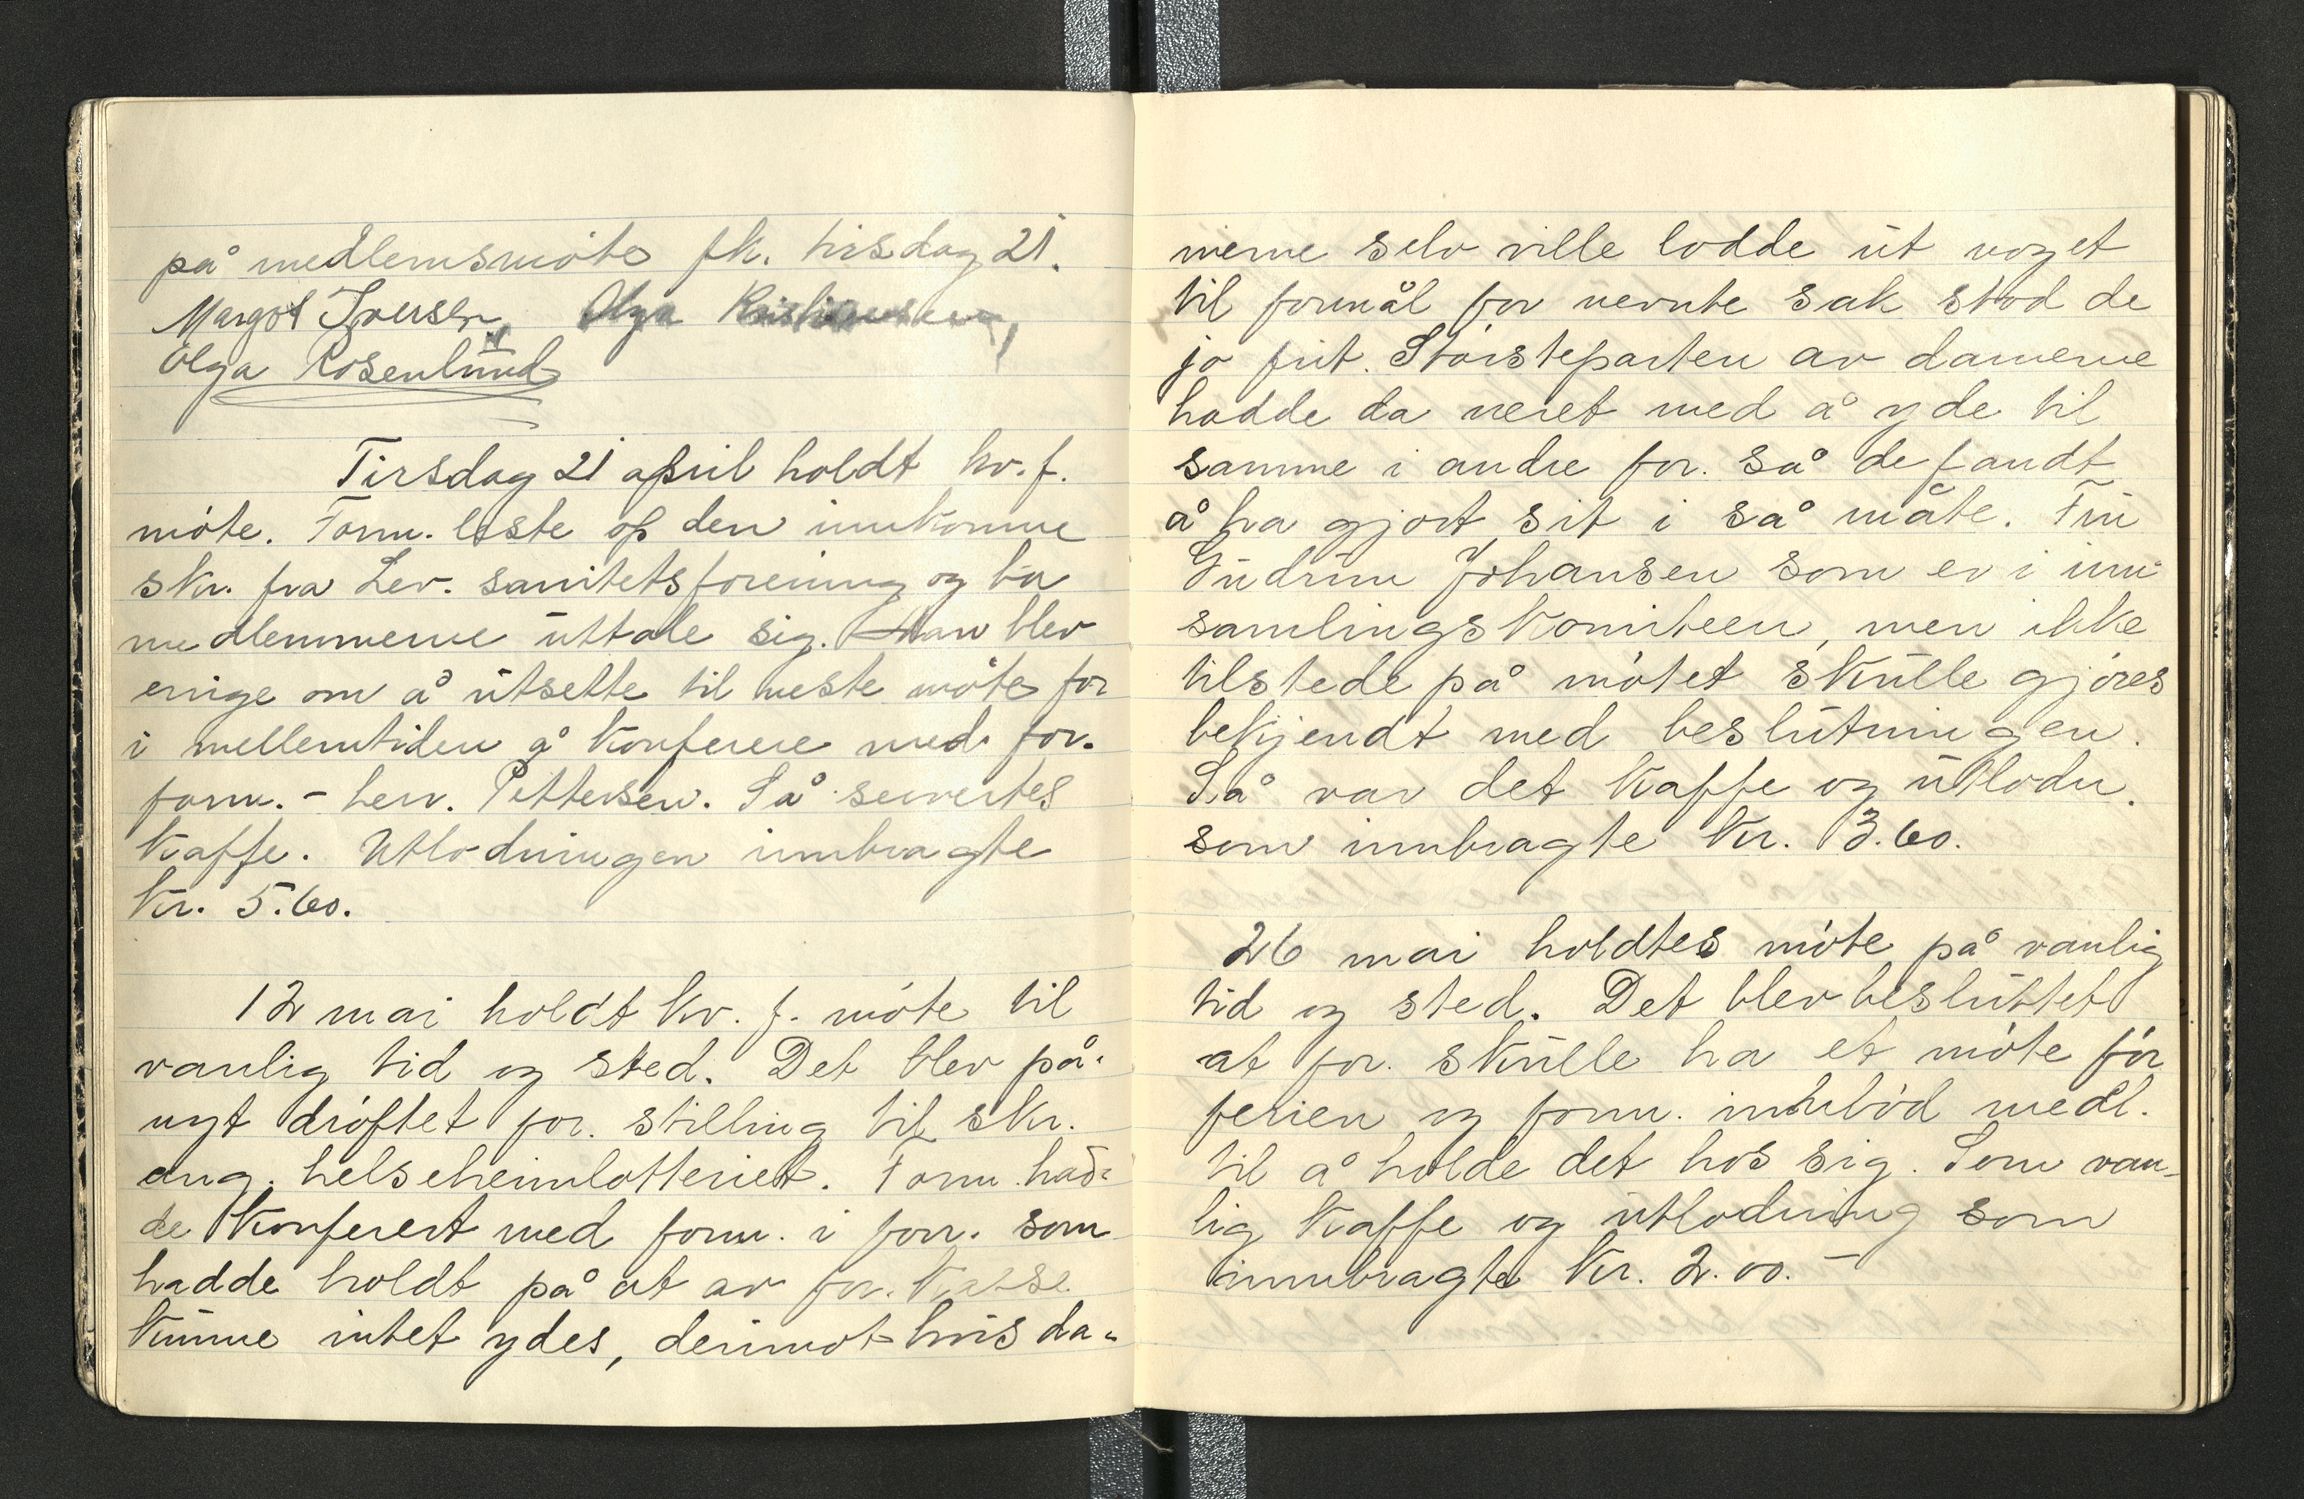 på medlemsmöte fk. tirsdag 21.
Margot Iversen, Olga Kristiansen,
Olga Rosenlund
Tirsdag 21 april holdt kv. f.
möte. Form. leste op den innkomne
skr. fra Lev. sanitetsforening og ba
medlemmerne uttale sig. Man blev
enige om å utsette til neste möte for
i mellemtiden å konferere med for.
form. - herr. Pettersen. Så servertes
kaffe. Utlodningen innbragte
Kr. 5.60.
12 mai holdt kv. f. möte til
vanlig tid og sted. Det blev på-
nyt dröftet for. stilling til skr.
ang. helseheimlotteriet. Form. had-
de konferert med form. i forr. som
hadde holdt på at av for. kasse
kunne intet ydes, derimot hvis da-
merne selv ville lodde ut noget
til formål for nevnte sak stod de
jo frit. Störsteparten av damerne
hadde da veret med å yde til
samme i andre for. så de fandt
å ha gjort sit i så måte. Fru
Gudrun Johansen som er i inn-
samlingskomiteen, men ikke
tilstede på mötet skulle gjöres
bekjendt med beslutningen.
Så var det kaffe og utlodn.
som innbragte Kr. 3.60.
26 mai holdtes möte på vanlig
tid og sted. Det blev besluttet
at for. skulle ha et möte för
ferien og form. innböd medl.
til å holde det hos sig. Som van-
lig kaffe og utlodning som
innbragte Kr. 2.00. -